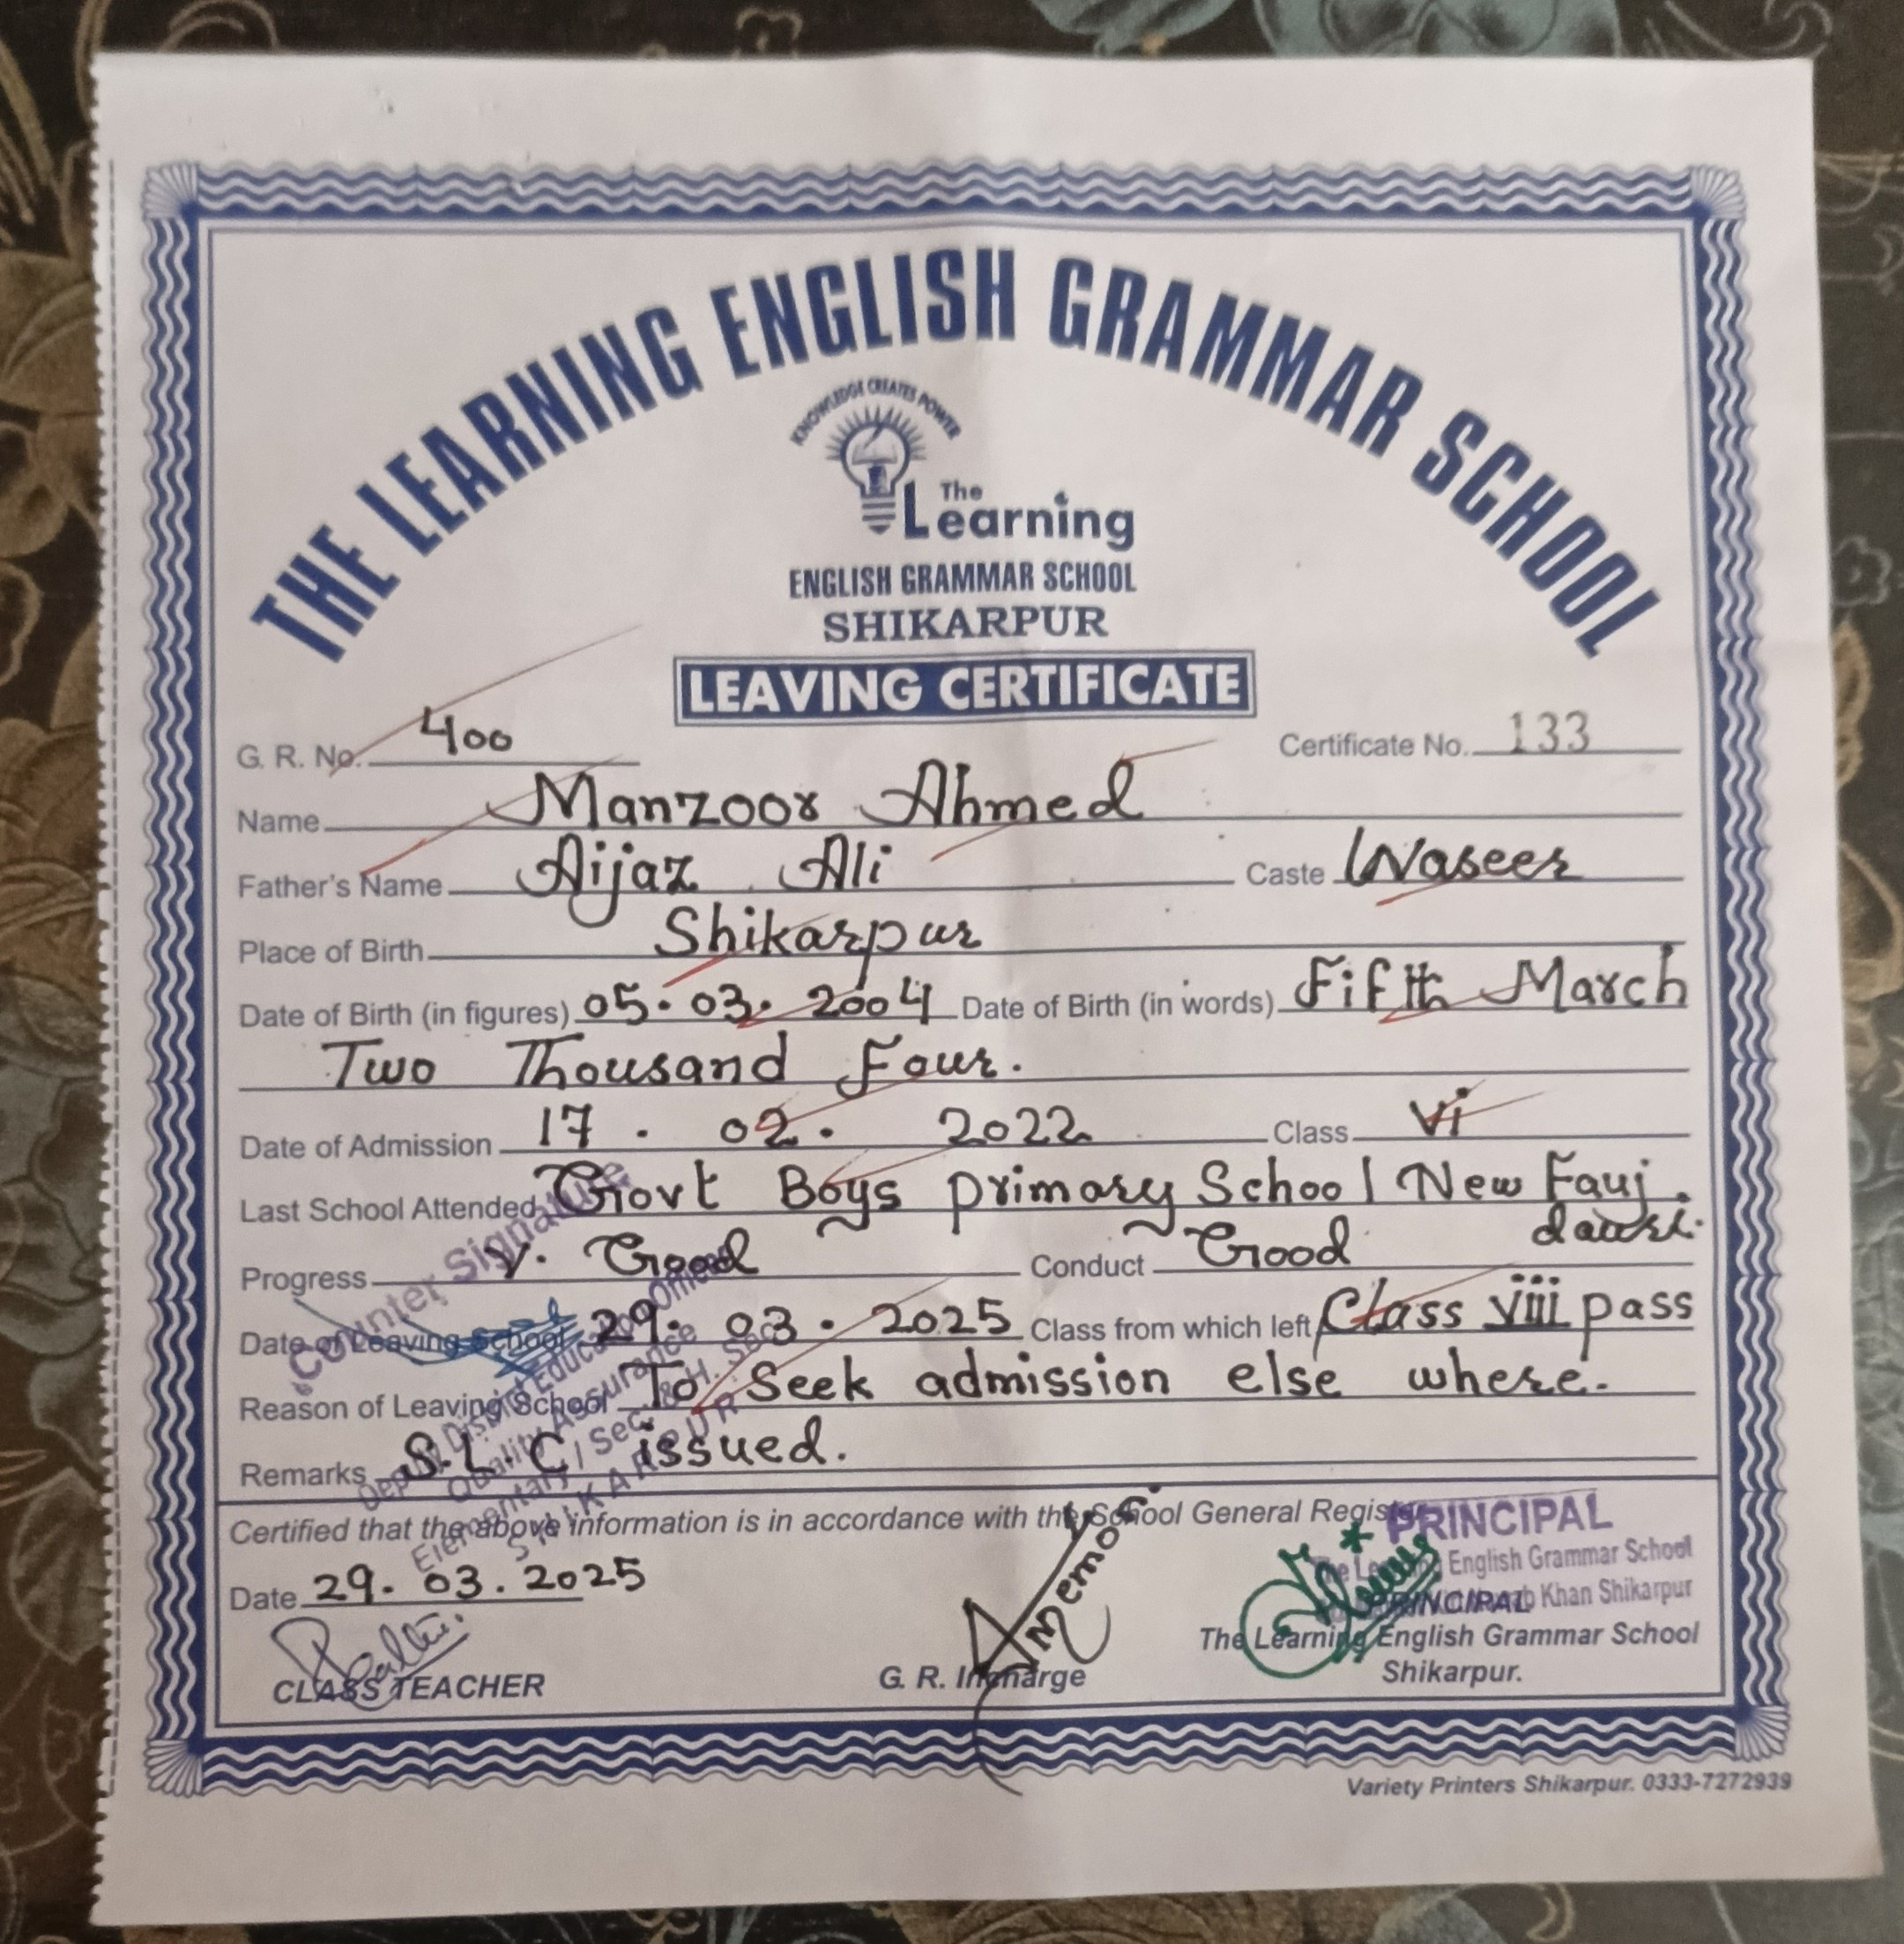 THE LEARNING ENGLISH GRAMMAR SCHOOL
KNOWLEDGE CREATES POWER
The Learning
ENGLISH GRAMMAR SCHOOL
SHIKARPUR
LEAVING CERTIFICATE
G. R. No. 400 Certificate No. 133
Name Manzoor Ahmed
Father's Name Aijaz Ali Caste Waseer
Place of Birth Shikarpur
Date of Birth (in figures) 05. 03. 2004 Date of Birth (in words) Fifth March
Two Thousand Four.
Date of Admission 17. 02. 2022 Class vi
Last School Attended Govt Boys primary School New Fauj.
Progress v. Good Conduct Good
Date of Leaving School 29. 03. 2025 Class from which left Class viii pass
Reason of Leaving School To Seek admission else where.
Remarks S.L.C issued.
Counter Signature
Deputy District Education Officer
Quality Assurance
Elementary / Sec: & H. Sec
SHIKARPUR
Certified that the above information is in accordance with the School General Register
Date 29. 03. 2025
CLASS TEACHER
G. R. Incharge
Memon
PRINCIPAL
The Learning English Grammar School
Khan Shikarpur
PRINCIPAL
The Learning English Grammar School
Shikarpur.
Variety Printers Shikarpur. 0333-7272939